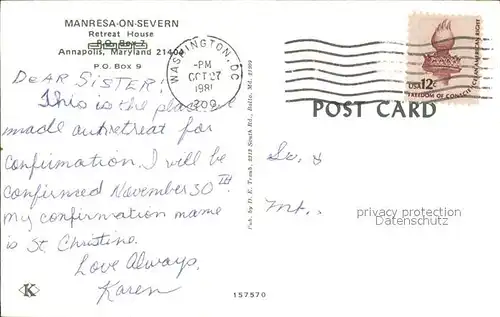 MANRESA-ON-SEVERN
Retreat House
P.O. Box
Annapolis, Maryland 21404
P.O. Box 9
DEAR SISTER!
This is the place we
made our retreat for
Confirmation. I will be
confirmed November 30th
My confirmation name
is St. Christine.
Love Always,
Karen
K
Pub. by D. E. Traub, 2213 South Rd., Balto. Md. 21209
157570
WASHINGTON, DC
-PM
OCT 27
1981
209
USA 12c
FREEDOM OF CONSCIENCE AN AMERICAN RIGHT
POST CARD
Sr. &
Mt.
privacy protection
Datenschutz